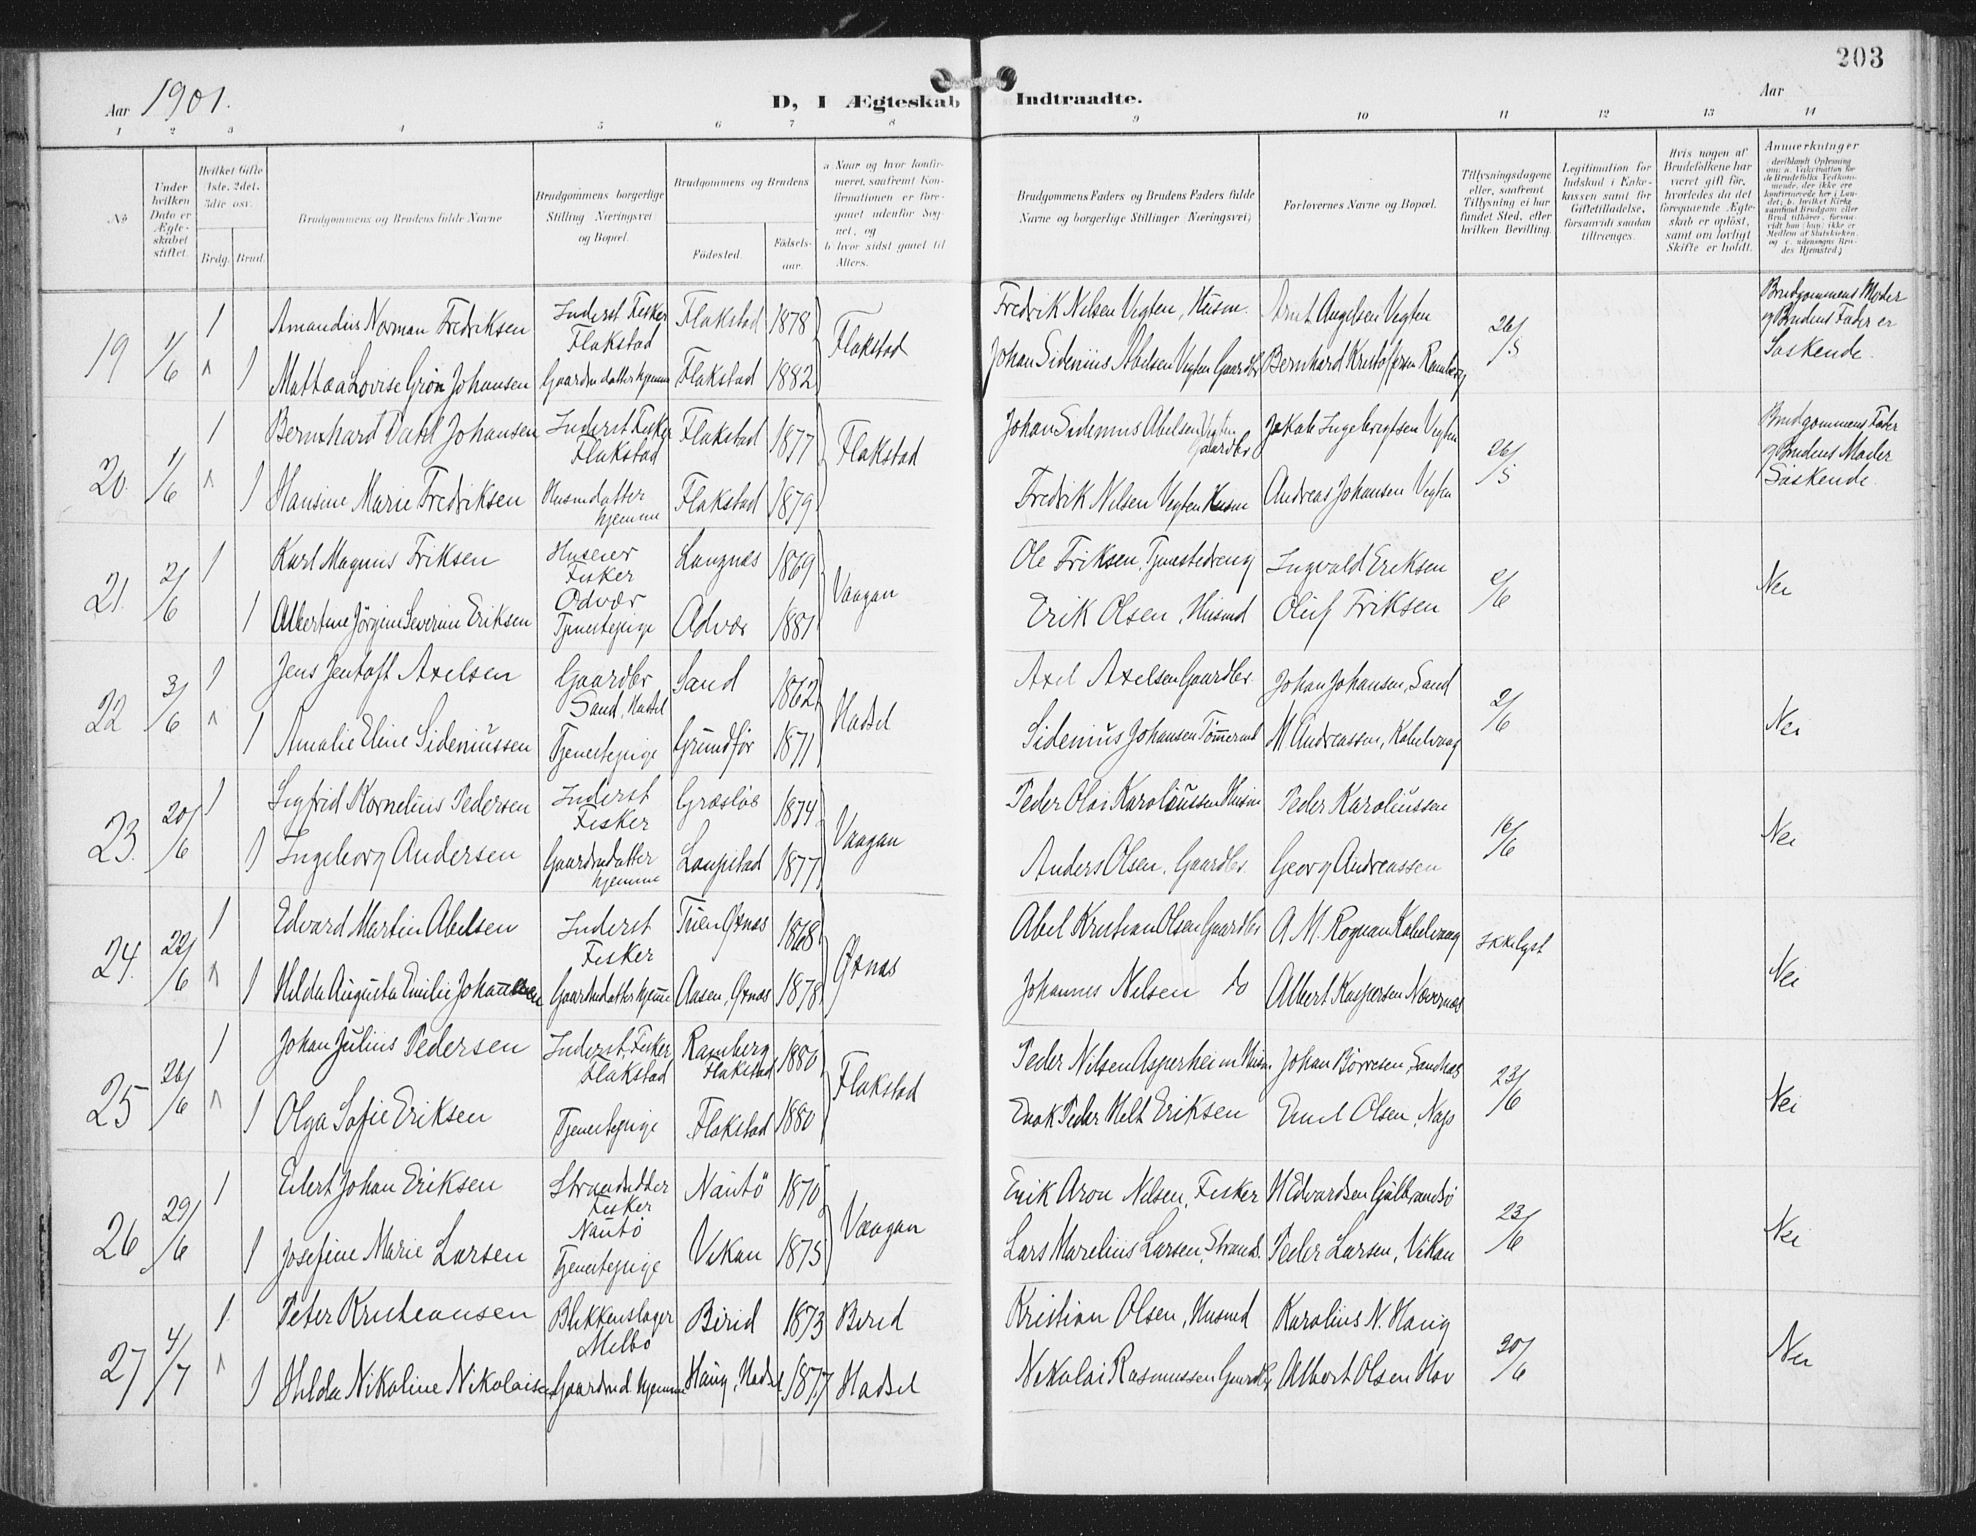 203
Aar 1901.
D, I Ægteskab Indtraadte.
Aar
1 2 3 4 5 6 7 8 9 10 11 12 13 14
No
Under hvilken Dato er Ægteskabet stiftet.
Hvilket Gifte 1ste. 2det. 3die osv.
Brdg. Brud.
Brudgommens og Brudens fulde Navne
Brudgommens borgerlige Stilling Næringsvei og Bopæl.
Brudgommens og Brudens
Födested.
Födselsaar.
a Naar og hvor konfirmeret, saafremt Konfirmationen er foregaaet udenfor Sognet, og
b hvor sidst gaaet til Alters.
Brudgommens Faders og Brudens Faders fulde Navne og borgerlige Stillinger Næringsvei)
Forlovernes Navne og Bopæl.
Tillysningsdagene eller, saafremt Tillysning ei har fundet Sted, efter hvilken Bevilling.
Legitimation for Indskud i Enkekassen samt for Giftetilladelse, forsaavidt saadan tiltrænges.
Hvis nogen af Brudefolkene har været gift för, hvorledes da det foregaaende Ægteskab er oplöst, samt om lovligt Skifte er holdt.
Anmerkninger
19 1/6 1 Amandus Norman Fredriksen Inderst Fisker Flakstad Flakstad 1878 Flakstad Fredrik Nilsen Vigten, Husm. Arnt Angelsen Vigten 26/5 Brudgommens Moder og Brudens Fader er Söskende.
1 Mattea Lovise Grön Johansen Gaardmdatter hjemme Flakstad 1882 Johan Sidenius Abelsen Vigten Gaardbr Bernhard Kristoffersen Ramberg
20. 1/6 1 Bernhard Dahl Johansen Inderst Fisker Flakstad Flakstad 1877 Flakstad Johan Sidenius Abelsen Vigten Gaardbr Jakob Ingebrigtsen Vigten 26/5 Brudgommens Fader og Brudens Moder Söskende.
1 Hansine Marie Fredriksen Husmdatter hjemme Flakstad 1879 Fredrik Nilsen Vigten Husm Andreas Johansen Vigten
21. 2/6 1 Karl Magnus Eriksen Huseier Fisker Odvær Langnes 1869 Vaagan Ole Eriksen, Tjenestedreng Ingvald Eriksen 2/6 Nei
1 Albertine Jörgine Severine Eriksen Tjenestepige Odvær 1881 Erik Olsen, Husmd Oluf Eriksen
22 3/6 1 Jens Jentoft Axelsen Gaardbr Sand, Hadsel Sand 1862 Hadsel Axel Axelsen Gaardbr. Johan Johansen, Sand 2/6 Nei
1 Amalie Eline Sideniussen Tjenestepige Grundför 1871 Sidenius Johansen Tömmermd M Andreassen, Kabelvaag
23. 20/6 1 Sigfrid Kornelius Pedersen Inderst Fisker 1874 Vaagan Peder Olai Karoliussen Husm Peder Karoliussen 16/6 Nei
1 Ingeborg Andersen Gaardmdatter hjemme Laupstad 1877 Anders Olsen, Gaardbr. Georg Andreassen
24. 22/6 1 Edvard Martin Abelsen Inderst Fisker Tuen Öxnes 1868 Öxnes Abel Kristian Olsen Gaardbr A M. Rognan Kabelvaag Ikke lyst Nei
1 Hilda Augusta Emilie Johannesen Gaardmdatter hjemme Aasen, Öxnes 1878 Johannes Nilsen do Albert Kaspersen Nævernes
25 26/6 1 Johan Julius Pedersen Inderst, Fisker Flakstad Ramberg Flakstad 1880 Flakstad Peder Nilsen Asperheim Husm. Johan Börresen, Sandnes 23/6 Nei
1 Olga Sofie Eriksen Tjenestepige Flakstad 1880 Enok Peder Helt Eriksen Emil Olsen, Nap
26 29/6 1 Eilert Johan Eriksen Strandsidder Fisker Nautö Nautö 1870 Vaagan Erik Aron Nilsen, Fisker H Edvardsen Gulbrandsö 23/6 Nei
1 Josefine Marie Larsen Tjenestepige Vikan 1875 Lars Marelius Larsen, Strands. Peder Larsen, Vikan
27 4/7 1. Peter Kristiansen Blikkenslager Melbo Birid 1873 Birid Kristian Olsen, Husmd Karolius N. Haug 30/6 Nei
1 Hilda Nikoline Nikolaisen Gaardmd hjemme Haug, Hadsel 1877 Hadsel Nikolai Rasmussen Gaardbr Albert Olsen Hov